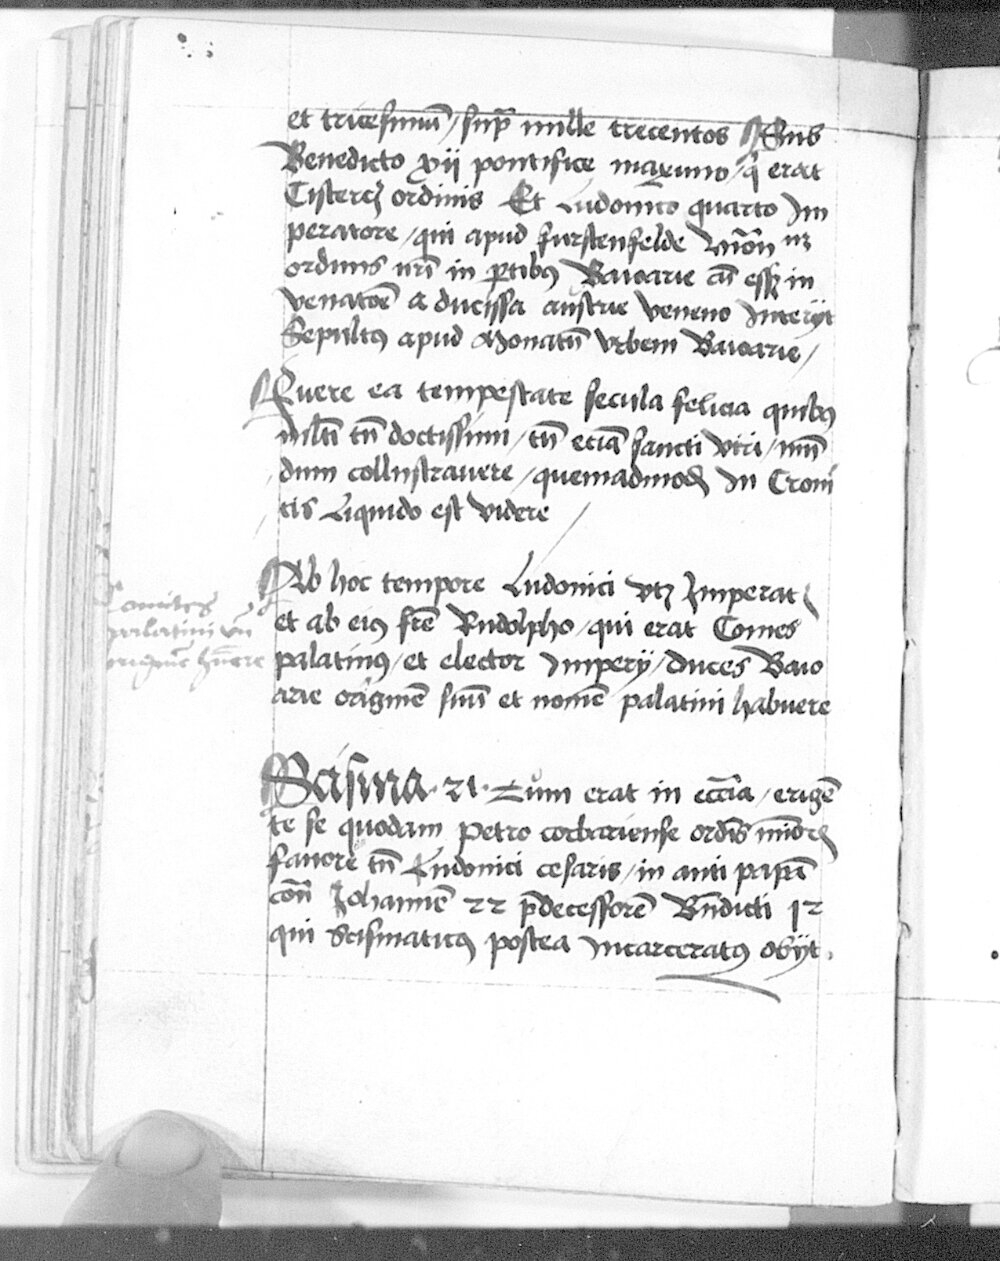 et tricesimū / supͣ mille trecentos Sub
Benedicto xii pontifice maximo / qͥ erat
Cistercͥ ordinis Et Ludouico quarto Im
peratore / qui apud furstenfelde
ordinis nrī in ꝑtibꝰ Bauarie in
venatōe a ducissa austrie veneno Interijt
Sepultꝰ apud Monacū vrbem Bauarie /
Fuere ea tempestate secula felicia quibꝰ
mlti tū doctissimi / tū eciā sancti viri / mū
dum collustrauere / quemadmodū In Croni
cis Liquido est videre
Ab hoc tempore Ludouici vtꝫ Imperat
Comites
palatini vñ
originē hūere
et ab eiꝰ frē Rudolpho / qui erat Comes
palatinꝰ / et elector Imperij / duces Bauo
arie originē suū et nomē palatini habuere
Scisma · 21 · Tum erat in eccīa / erigē
te se quodam Petro corbariense ordīs minoꝝ
fauore tn̄ Ludouici cesaris / in anti papā
con̄ Johannē 22 p̄decessorē Bn̄dicti 12
qui Scismaticꝰ postea Incarceratꝰ obijt ·